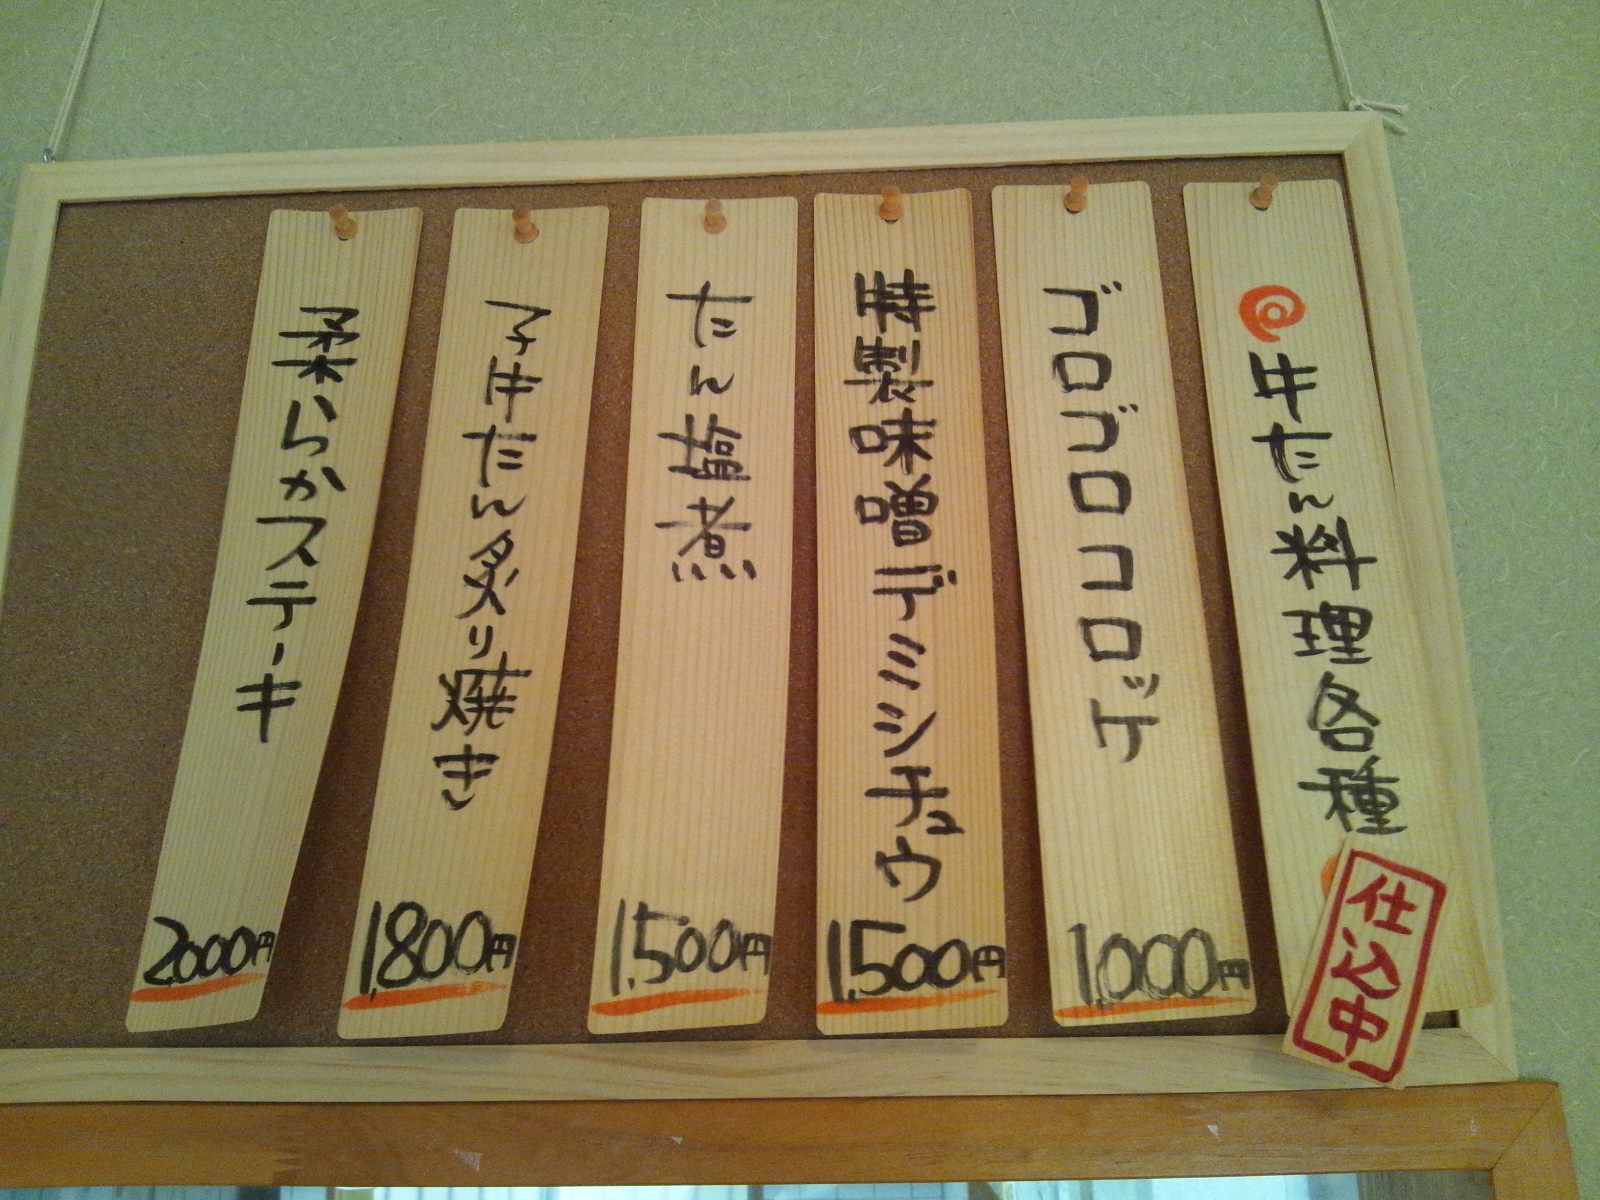 牛たん料理各種
仕込中
ゴロゴロコロッケ
1,000円
特製味噌デミシチュウ
1,500円
たん塩煮
1,500円
子牛たん炙り焼き
1,800円
柔らかステーキ
2,000円